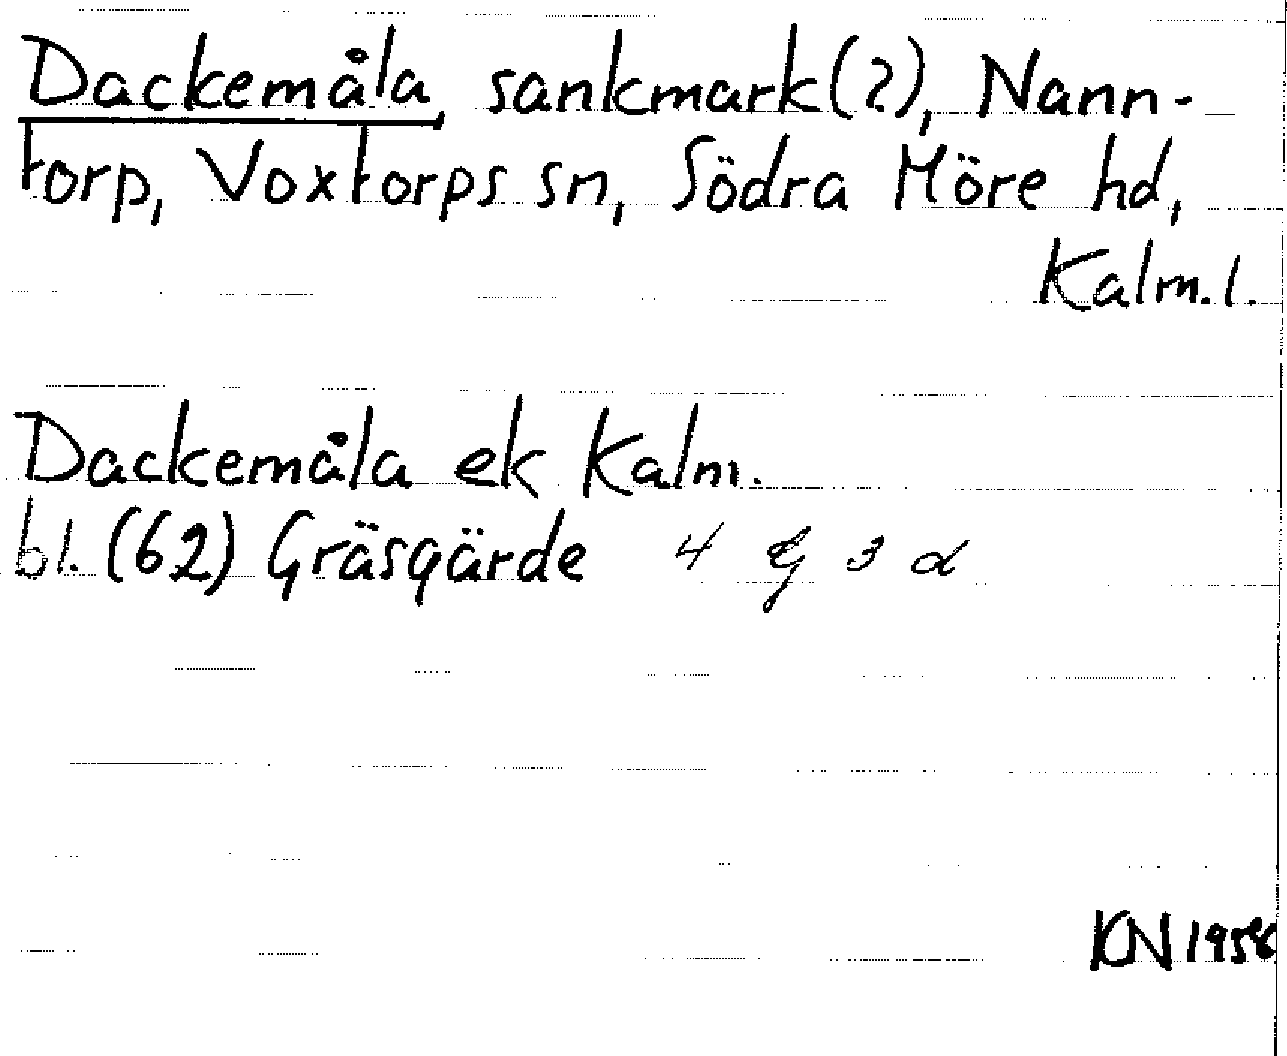 Dackemåla, sankmark(?), Nann-
torp, Voxtorps sn, Södra Möre hd,
Kalm.l.
Dackemåla ek Kalm.
bl. (62) Gräsgärde 4 G 3 d
KN